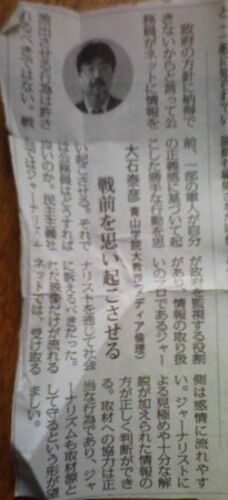 戦前を思い起こさせる
大石泰彦 青山学院大教授(メディア倫理)
政府の方針に納得で
きないからと言って公
務員がネットに情報を
流出させる行為は許さ
れるべきではない。戦
前、一部の軍人が自分
の正義感に基づいて起
こした勝手な行動を思
い起こさせる。それで
は公務員はどうすれば
良いのか。民主主義社
会ではジャーナリズム
が政府を監視する役割
があり、情報の取り扱
いのプロであるジャー
ナリストを通じて社会
に訴えるべきだった。
ただ映像だけが流れる
ネットでは、受け取る
側は感情に流れやす
い。ジャーナリストに
よる見極めや十分な解
説が加えられた情報の
方が正しく判断ができ
る。取材への協力は正
当な行為であり、ジャ
ーナリズムも取材源と
して守るという形が望
ましい。